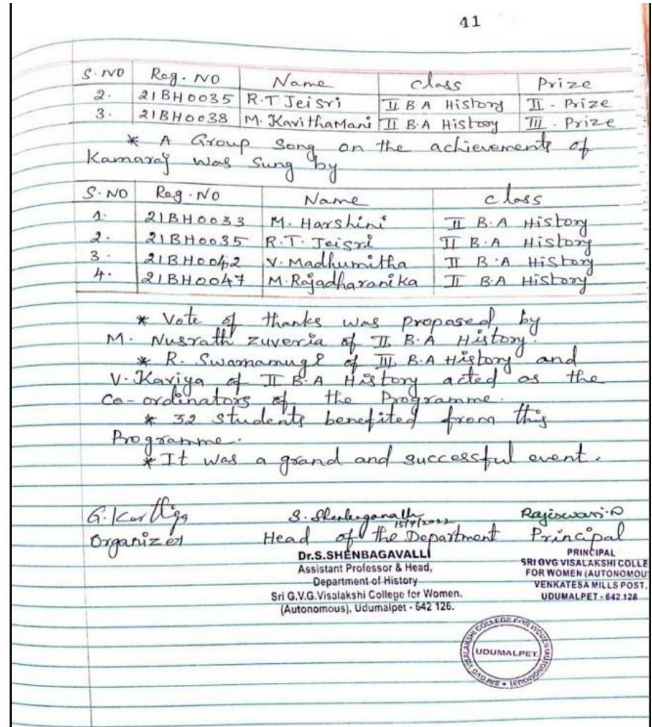 41
S.NO Reg. NO Name class Prize
2. 21BH0035 R.T Jeisri II B.A History II - Prize
3. 21BH0038 M. KavithaMani II B.A History III - Prize
* A Group Song on the achievements of
Kamaraj was sung by
S.NO Reg.NO Name class
1. 21BH0033 M. Harshini II B.A History
2. 21BH0035 R.T. Jeisri II B.A History
3. 21BH0042 V. Madhumitha II B.A History
4. 21BH0047 M. Rajadharanika II B.A History
* Vote of thanks was proposed by
M. Nusrath Zuveria of II B.A History.
* R. Swarnamugi of III B.A History and
V. Kaviya of II B.A History acted as the
Co-ordinators of the Programme.
* 32 students benefited from this
Programme.
* It was a grand and successful event.
G. Karthiga
Organizer
15/7/2022
Head of the Department
Dr.S.SHENBAGAVALLI
Assistant Professor & Head,
Department of History
Sri G.V.G.Visalakshi College for Women.
(Autonomous), Udumalpet - 642 126.
Rajeswari.P
Principal
PRINCIPAL
SRI GVG VISALAKSHI COLLE
FOR WOMEN (AUTONOMOU
VENKATESA MILLS POST.
UDUMALPET - 642 128
UDUMALPET.